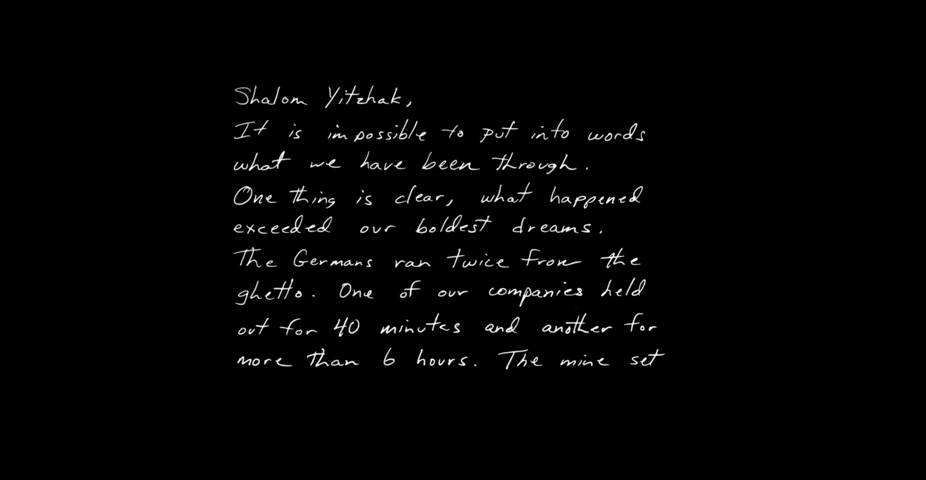 Shalom Yitzhak,
It is impossible to put into words
what we have been through.
One thing is clear, what happened
exceeded our boldest dreams.
The Germans ran twice from the
ghetto. One of our companies held
out for 40 minutes and another for
more than 6 hours. The mine set